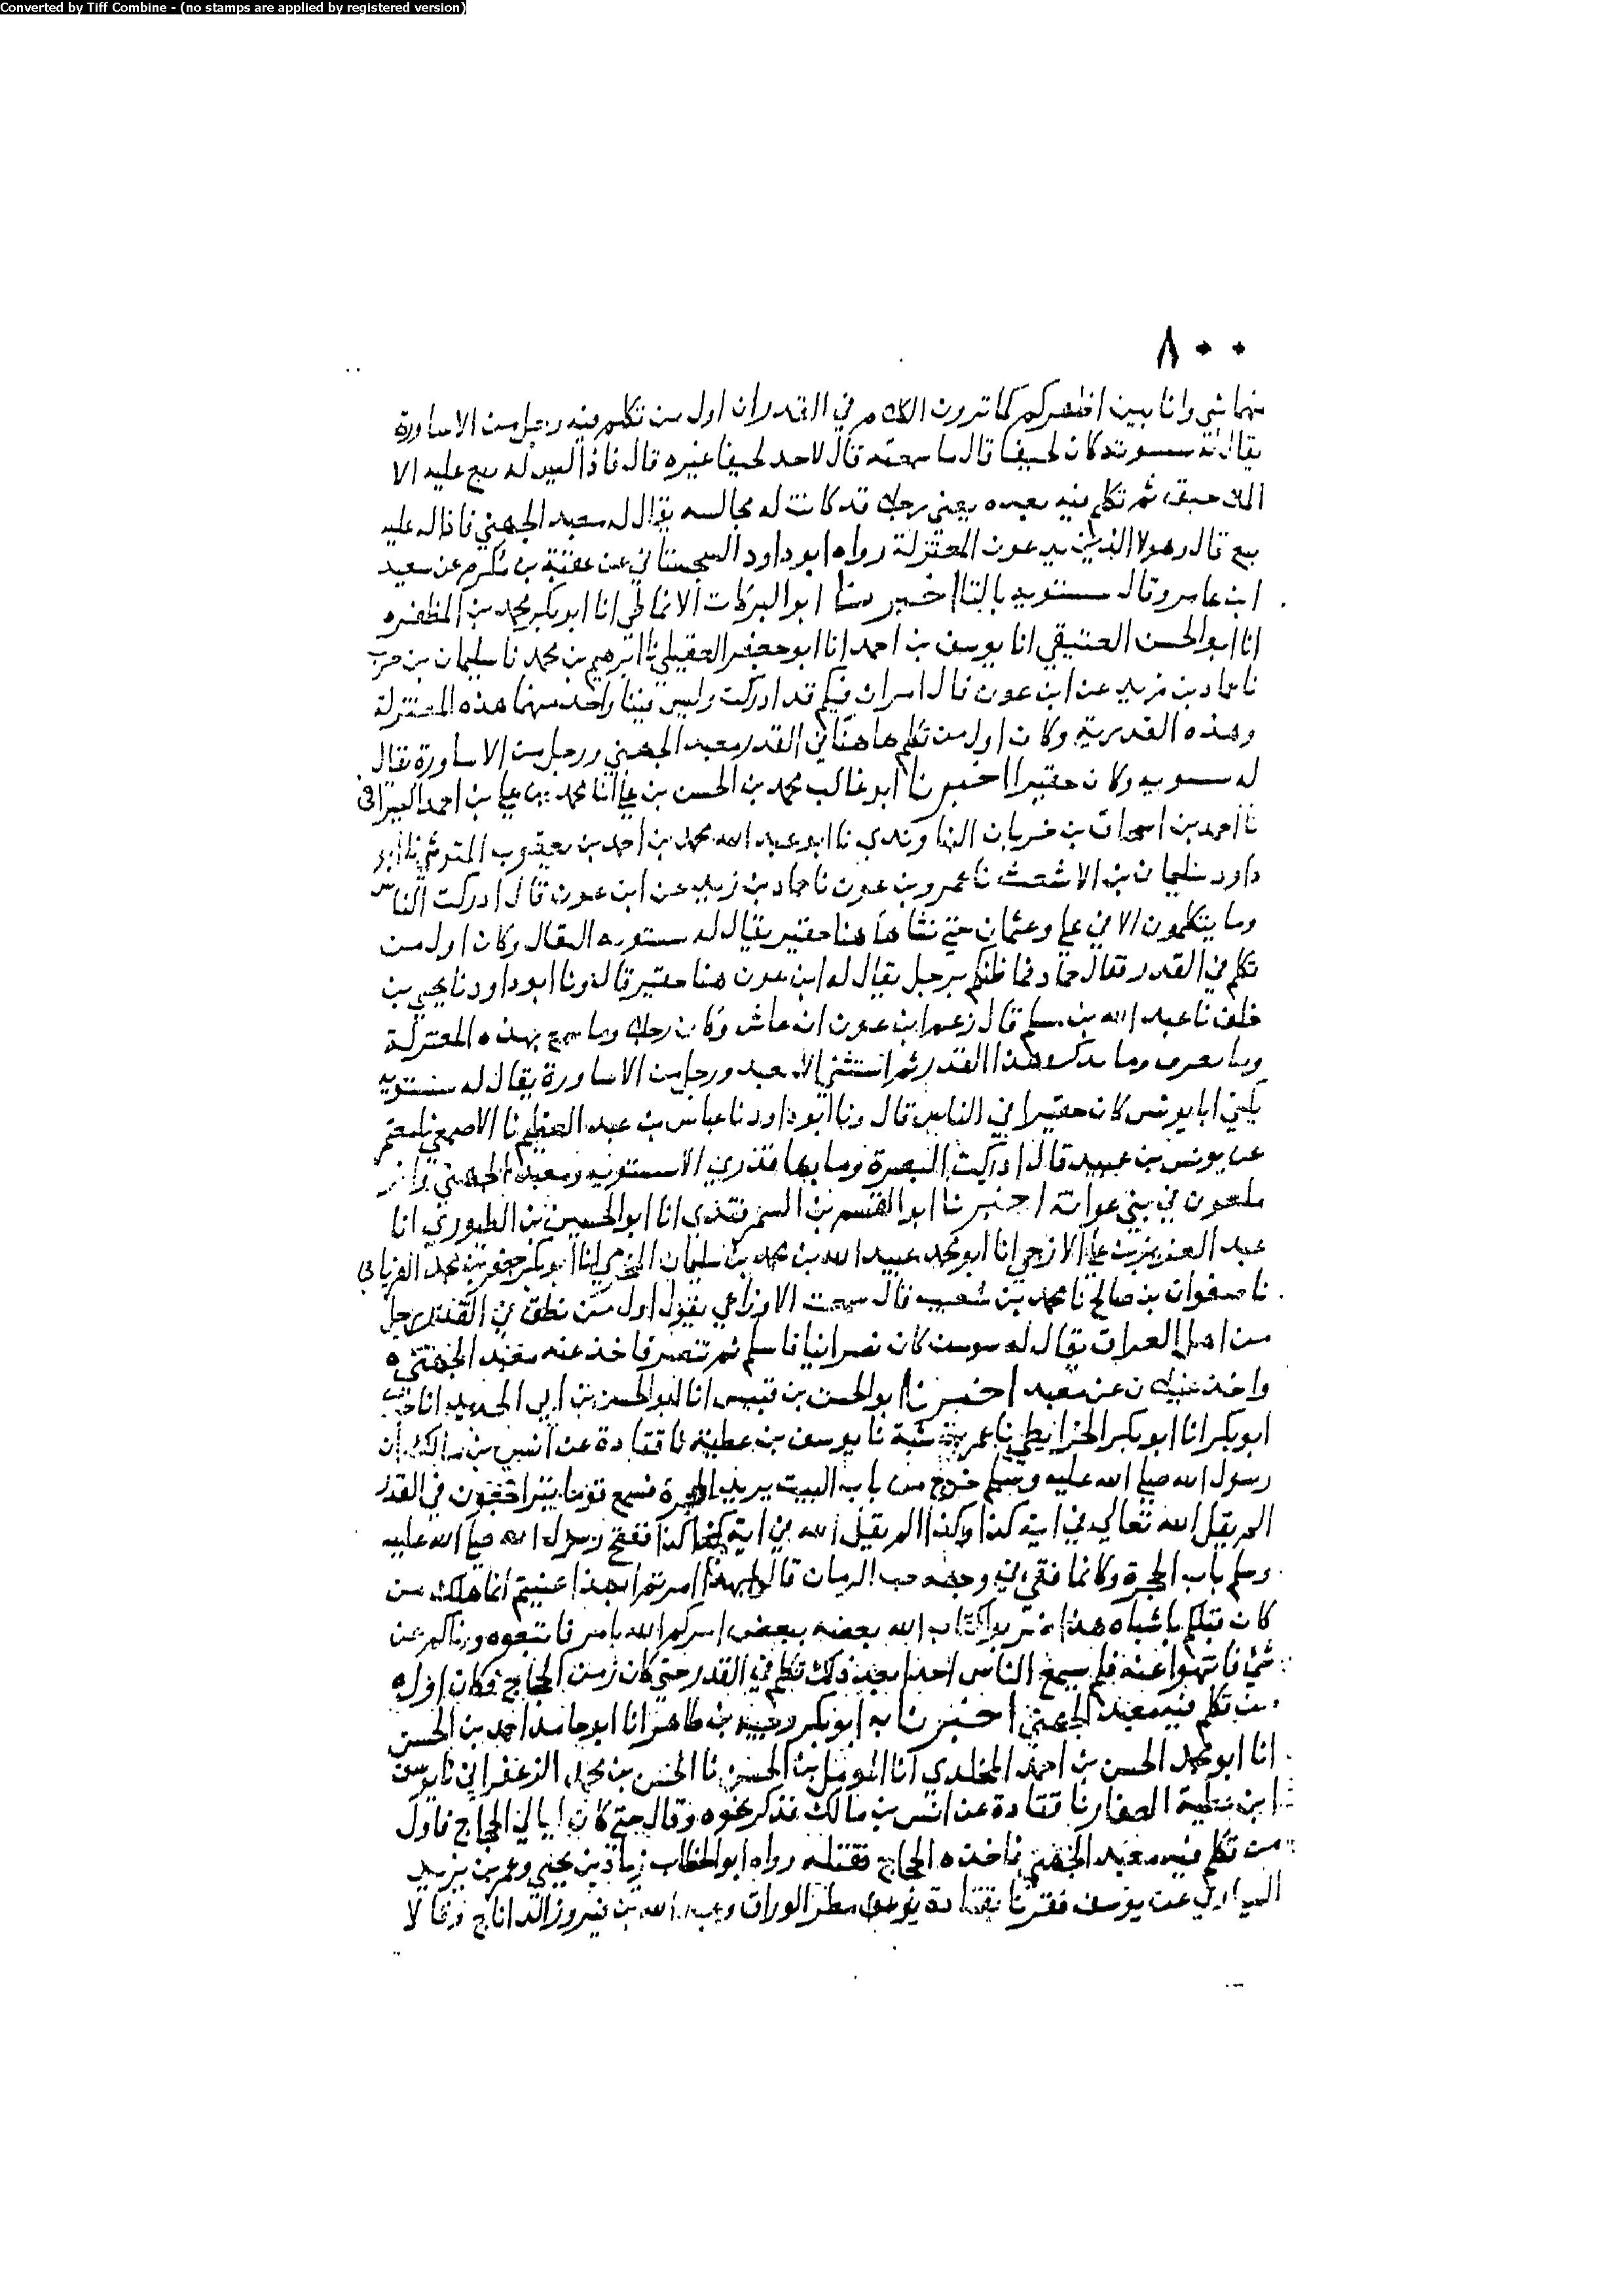 Converted by Tiff Combine - (no stamps are applied by registered version)
٨٠٠
منهما شي وانا بين اظهركم كما ترون الكلام في القدر ان اول من تكلم فيه رجل من الاساورة
يقال له كان لحيفا قال ما سمعته قال لاحد لحيفا غيره قال فاذا ليس له تبع عليه الا
الملاحين ثم تكلم فيه بعده يعني رجلا قد كانت له مجالسه يقال له معبد الجهني فاذا له عليه
تبع قال وهولا الذين يدعون المعتزلة رواه ابو داود السجستاني عن عقبة بن مكرم عن سعيد
ابن عامر وقال سنتويه بالتا اخبرنا ابو البركات الانماطي انا ابو بكر محمد بن المظفره
انا ابو الحسن العتيقي انا يوسف بن احمد انا ابو جعفر العقيلي نا ابرهيم بن محمد نا سليمان بن حرب
نا حماد بن زيد عن ابن عون قال امران فيكم قد ادركت وليس بيننا واحد منهما هذه المعتزلة
وهذه القدرية وكان اول من تكلم هاهنا في القدر معبد الجهني ورجل من الاساورة يقال
له سسويه وكان حقيرا اخبرنا ابو غالب محمد بن الحسن بن علي انا محمد بن علي بن احمد السيرافي
نا احمد بن اسحاق بن خربان النهاوندي نا ابو عبد الله محمد بن احمد بن يعقوب المتوثي نا ابو
داود سليمان بن الاشعث نا عمرو بن عون نا حماد بن زيد عن ابن عون قال ادركت الناس
وما يتكلمون الا في علي وعثمان حتى نشا هاهنا حقير يقال له سنتويه البقال وكان اول من
تكلم في القدر فقال حماد فما ظنكم برجل يقال له ابن عون هنا حقير قال ونا ابو داود نا يحيى بن
خلف نا عبد الله بن مسلم قال زعم ابن عون انه عاش وكان رجلا وما سمع بهذه المعتزلة
وما يعرف وما يذكر هذا القدر ثم استثنى الا معبد ورجل من الاساورة يقال له سنتويه
يكنى ابا يونس كان حقيرا في الناس قال ونا ابو داود نا عباس بن عبد العظيم نا الاصمعي نا معتمر
عن يونس بن عبيد قال ادركت البصرة وما بها قدري الا سنتويه ومعبد الجهني واخر
ملعون في بني عوانة اخبرنا ابو القسم بن السمرقندي انا ابو الحسين بن الطيوري انا
عبد العزيز بن علي الازجي انا ابو محمد عبيد الله بن محمد بن سليمان المخرمي نا ابو بكر جعفر بن محمد الفريابي
نا صفوان بن صالح نا محمد بن شعيب قال سمعت الاوزاعي يقول اول من نطق في القدر رجل
من اهل العراق يقال له سوسن كان نصرانيا فاسلم ثم تنصر فاخذ عنه معبد الجهني ه
واخذ غيلان عن معبد اخبرنا ابو الحسن بن قبيس انا ابو الحسن بن ابي الحديد انا جدي
ابو بكر انا ابو بكر الخرايطي نا عمر بن شبة نا يوسف بن عطية نا قتادة عن انس بن مالك ان
رسول الله صلى الله عليه وسلم خرج من باب البيت يريد الحجرة فسمع قوما يتراجعون في القدر
الم يقل الله تعالى في اية كذا وكذا الم يقل الله في اية كذا وكذا ففتح رسول الله صلى الله عليه
وسلم باب الحجرة وكانما فقي في وجهه حب الرمان قال ابهذا امرتم ابهذا عنيتم انما هلك من
كان قبلكم باشباه هذا ضربوا كتاب الله بعضه ببعض امركم الله بامر فاتبعوه ونهاكم عن
شي فانتهوا عنه فلم يسمع الناس احدا بعد ذلك تكلم في القدر حتى كان زمن الحجاج فكان اول
من تكلم فيه معبد الجهني اخبرنا به ابو بكر وجيه بن طاهر انا ابو حامد احمد بن الحسن
انا ابو محمد الحسن بن احمد المخلدي انا المومل بن الحسن نا الحسن بن محمد الزعفراني نا يوسف
ابن عطية الصفار نا قتادة عن انس بن مالك فذكر نحوه وقال حتى كان ليالي الحجاج فاول
من تكلم فيه معبد الجهني فاخذه الحجاج فقتله رواه ابو الخطاب زياد بن يحيى وعمر بن يزيد
السياري عن يوسف فقرنا بقتادة مطر الوراق وعبد الله بن فيروز الداناج وقالا